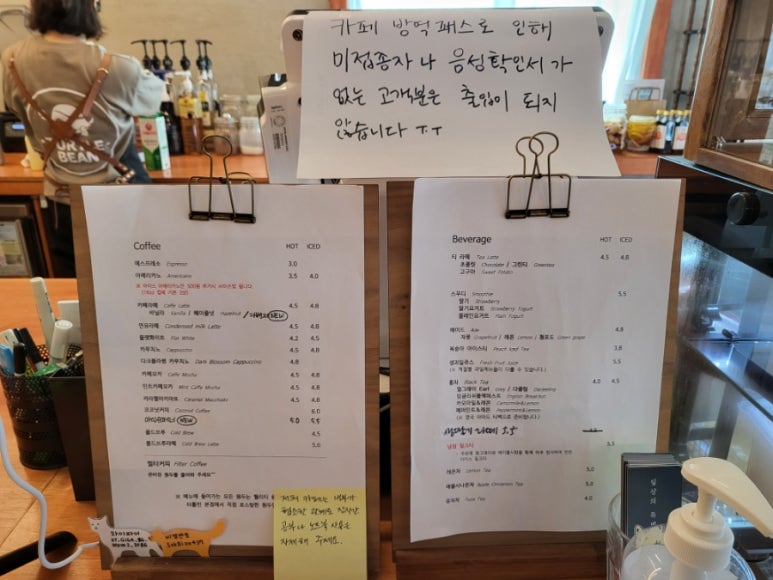 카페 방역패스로 인해
미접종자나 음성확인서가
없는 고객분은 출입이 되지
않습니다 ㅜㅜ
TURTLE
BEAN
Coffee HOT ICED
에스프레소 Espresso 3.0
아메리카노 Americano 3.5 4.0
카페라떼 Caffe Latte 4.5 4.8
바닐라 Vanilla / 헤이즐넛 Hazelnut / NEW
연유라떼 Condensed milk Latte 4.5 4.8
플랫화이트 Flat White 4.2 4.5
카푸치노 Cappuccino 4.5 4.8
다크블라썸 카푸치노 Dark Blossom Cappuccino 4.8
카페모카 Caffe Mocha 4.5 4.8
민트카페모카 Mint Caffe Mocha 4.5 4.8
카라멜마키아토 Caramel Macchiato 4.5 4.8
코코넛커피 Coconut Coffee 6.0
NEW 5.0 5.5
콜드브루 Cold Brew 4.5
콜드브루라떼 Cold Brew Latte 5.0
필터커피 Filter Coffee
준비된 원두를 물어봐 주세요
※ 메뉴에 들어가는 모든 원두는 퀄리티
터틀빈 본점에서 직접 로스팅한
Beverage HOT ICED
티 라떼 Tea Latte 4.5 4.8
초콜릿 Chocolate / 그린티 Greentea
고구마 Sweet Potato
스무디 Smoothie 5.5
딸기 Strawberry
딸기요거트 Strawberry Yogurt
플레인요거트 Plain Yogurt
에이드 Ade 4.8
자몽 Grapefruit / 레몬 Lemon / 청포도 Green grape
복숭아 아이스티 Peach Iced Tea 3.8
생과일쥬스 Fresh Fruit Juice 5.5
홍차 Black Tea 4.0 4.5
얼그레이 Earl Grey / 다즐링 Darjeeling
잉글리쉬블랙퍼스트 English Breakfast
카모마일&레몬 Camomile&Lemon
페퍼민트&레몬 Peppermint&Lemon
생딸기 라떼 5.5
레몬차 Lemon Tea 5.0
애플시나몬차 Apple Cinnamon Tea 5.0
유자차 Yuza Tea 4.0
와이파이
비밀번호
자제해 주세요.